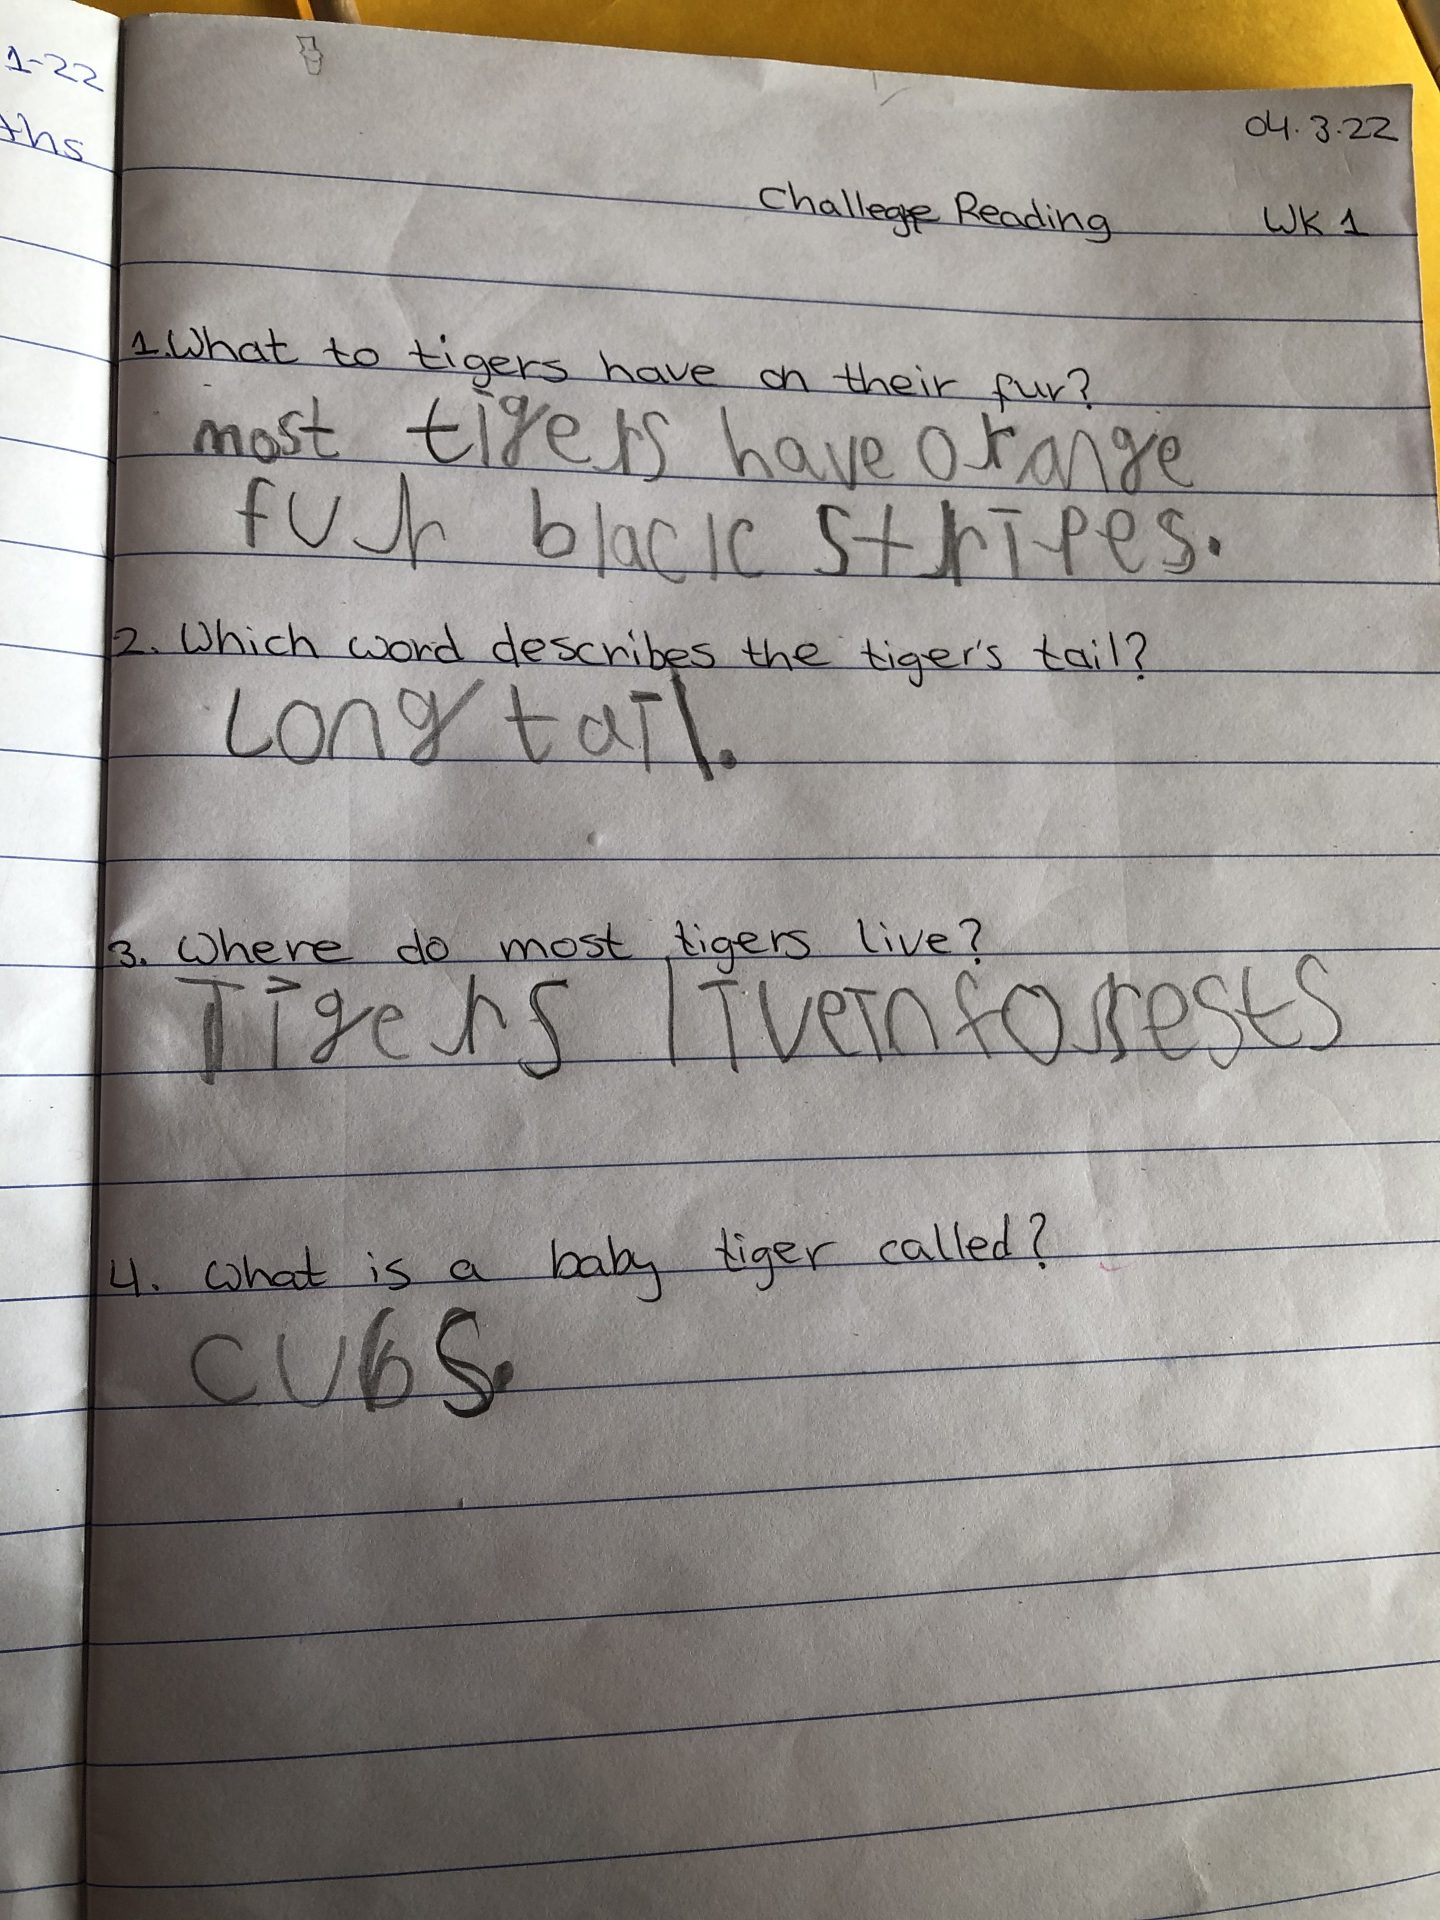 1-22
ths
04.3.22
Challege Reading WK 1
1. What to tigers have on their fur?
most tigers have orange
fur black stripes.
2. Which word describes the tiger's tail?
Long tail.
3. Where do most tigers live?
Tigers liveinforests
4. What is a baby tiger called?
cubs.